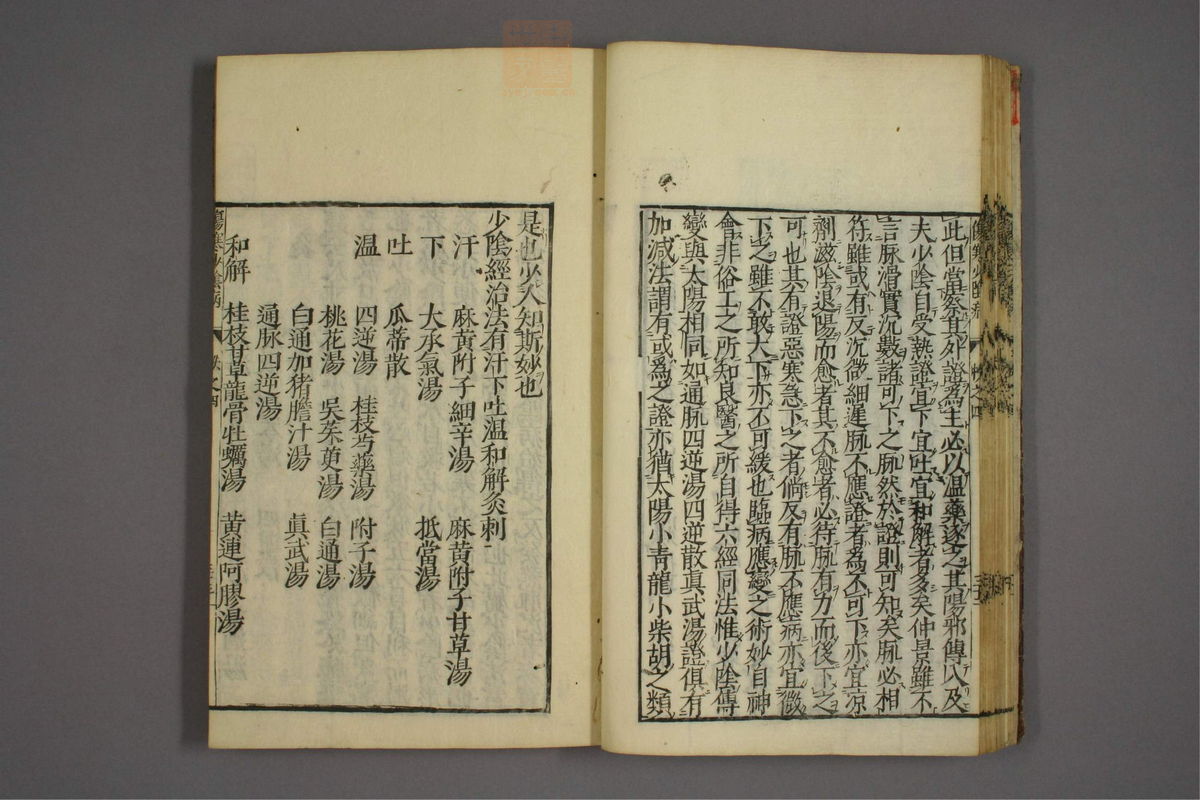 此但當察其外證為主必以溫藥逐之其陽邪傳入及
夫少陰自受熱證宜下宜吐宜和解者多矣仲景雖不
言脉滑實沉數諸可下之脉然於證則可知矣脉必相
符雖或有反沉微細遲脉不應證者為不可下亦宜凉
劑滋陰退陽而愈者其不愈者必待脉有力而後下之
可也其有證惡寒急下之者倘反有脉不應病亦宜微
下之雖不敢大下亦不可緩也臨病應變之術妙自神
會非俗工之所知良醫之所自得六經同法惟少陰傳
變與太陽相同如通脉四逆湯四逆散眞武湯證俱有
加減法謂有或為之證亦猶太陽小青龍小柴胡之類
是也必人知斯妙也
少陰經治法有汗下吐温和解灸刺
汗 麻黄附子細辛湯 麻黄附子甘草湯
下 大承氣湯 抵當湯
吐 瓜蒂散
温 四逆湯 桂枝芍藥湯 附子湯
桃花湯 吳茱萸湯 白通湯
白通加猪膽汁湯 眞武湯
通脉四逆湯
和解 桂枝甘草龍骨牡蠣湯 黄連阿膠湯